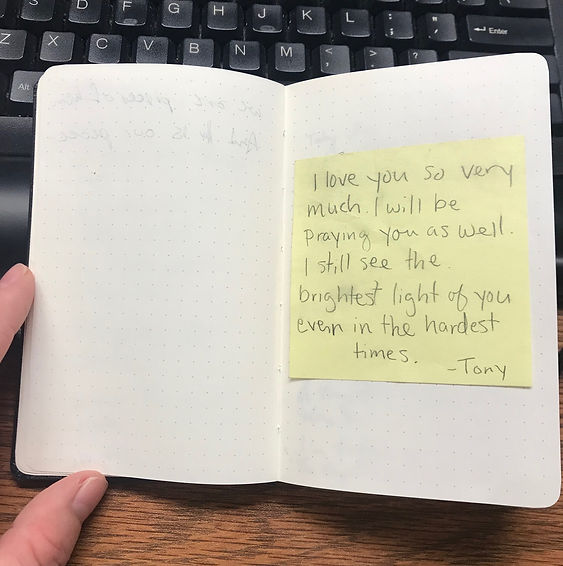 S D F G H J K L
Enter
Z X C V B N M < >
Alt
I love you so very
much. I will be
praying you as well.
I still see the.
brightest light of you
even in the hardest
times.
-Tony